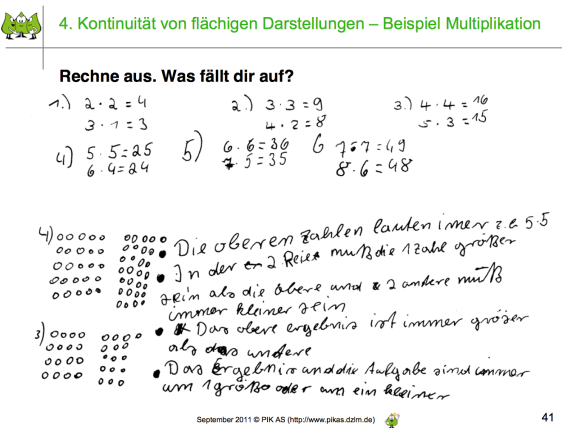 4. Kontinuität von flächigen Darstellungen – Beispiel Multiplikation
Rechne aus. Was fällt dir auf?
1.) 2 · 2 = 4
3 · 1 = 3
2.) 3 · 3 = 9
4 · 2 = 8
3.) 4 · 4 = 16
5 · 3 = 15
4) 5 · 5 = 25
6 · 4 = 24
5) 6 · 6 = 36
7 · 5 = 35
6 7 · 7 = 49
8 · 6 = 48
4)
• Die oberen zahlen lauten imer z.b 5·5
• In der 2 Reie muß die 1 zahl größer
sein als die obere und 2 andere muß
immer kleiner sein
3)
• Das obere ergebnis ist immer gröser
als das undere
• Das Ergebnis und die Aufgabe sind immer
um 1 größo oder um ein kleiner
September 2011 © PIK AS (http://www.pikas.dzlm.de)
41